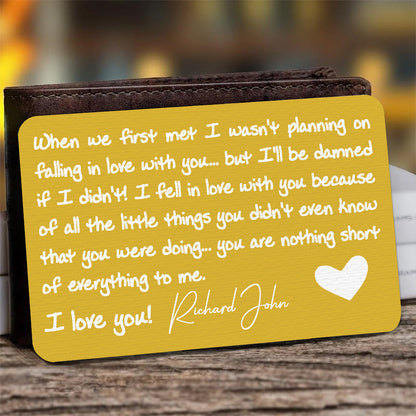 When we first met I wasn't planning on
falling in love with you... but I'll be damned
if I didn't! I fell in love with you because
of all the little things you didn't even know
that you were doing... you are nothing short
of everything to me.
I love you! Richard John